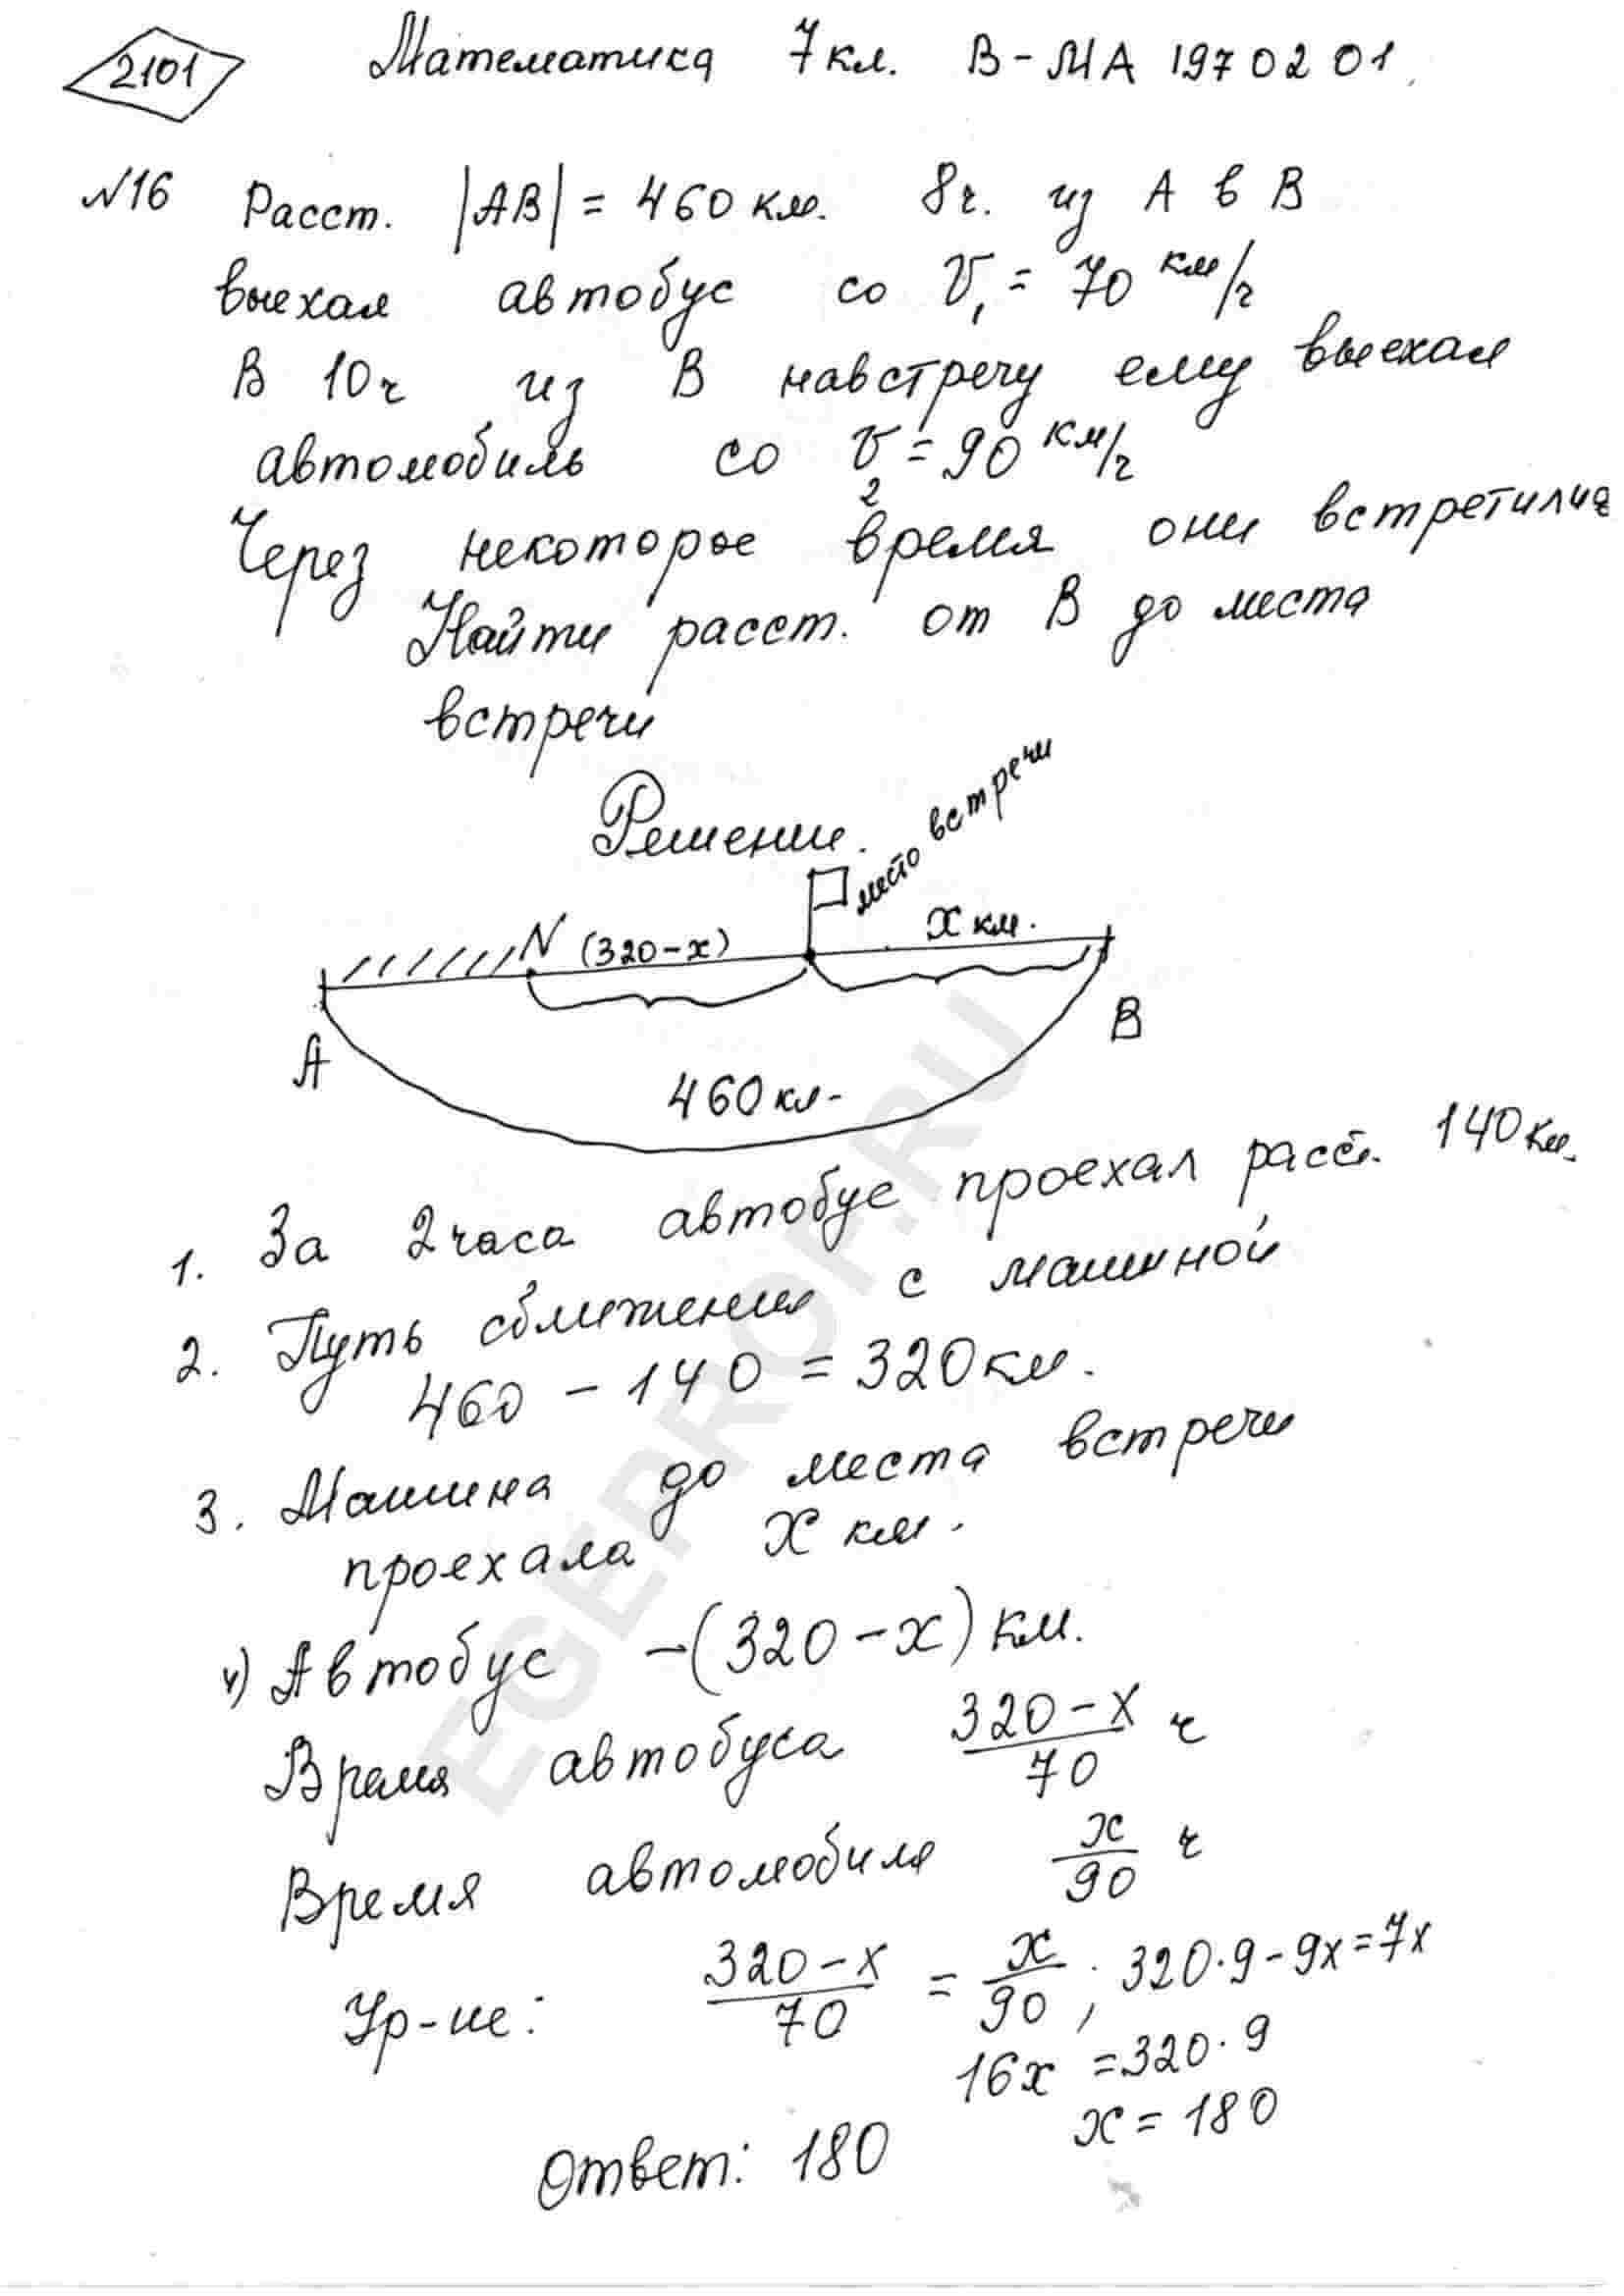 2101 Математика 7кл. В-МА 1970201.
№16 Расст. |АВ| = 460 км. 8ч. из А в В
выехал автобус со V₁ = 70 км/ч
В 10ч из В навстречу ему выехал
автомобиль со V₂ = 90 км/ч
Через некоторое время они встретились
Найти расст. от В до места
встречи
Решение.
место встречи
N (320-х) х км.
А В
460 км.
1. За 2 часа автобус проехал расст. 140 км.
2. Путь сближения с машиной
460 - 140 = 320 км.
3. Машина до места встречи
проехала х км.
4) Автобус -(320-х) км.
Время автобуса (320-х)/70 ч
Время автомобиля х/90 ч
Ур-ие: (320-х)/70 = х/90; 320·9-9х=7х
16х = 320·9
х = 180
Ответ: 180
EGEPROF.RU